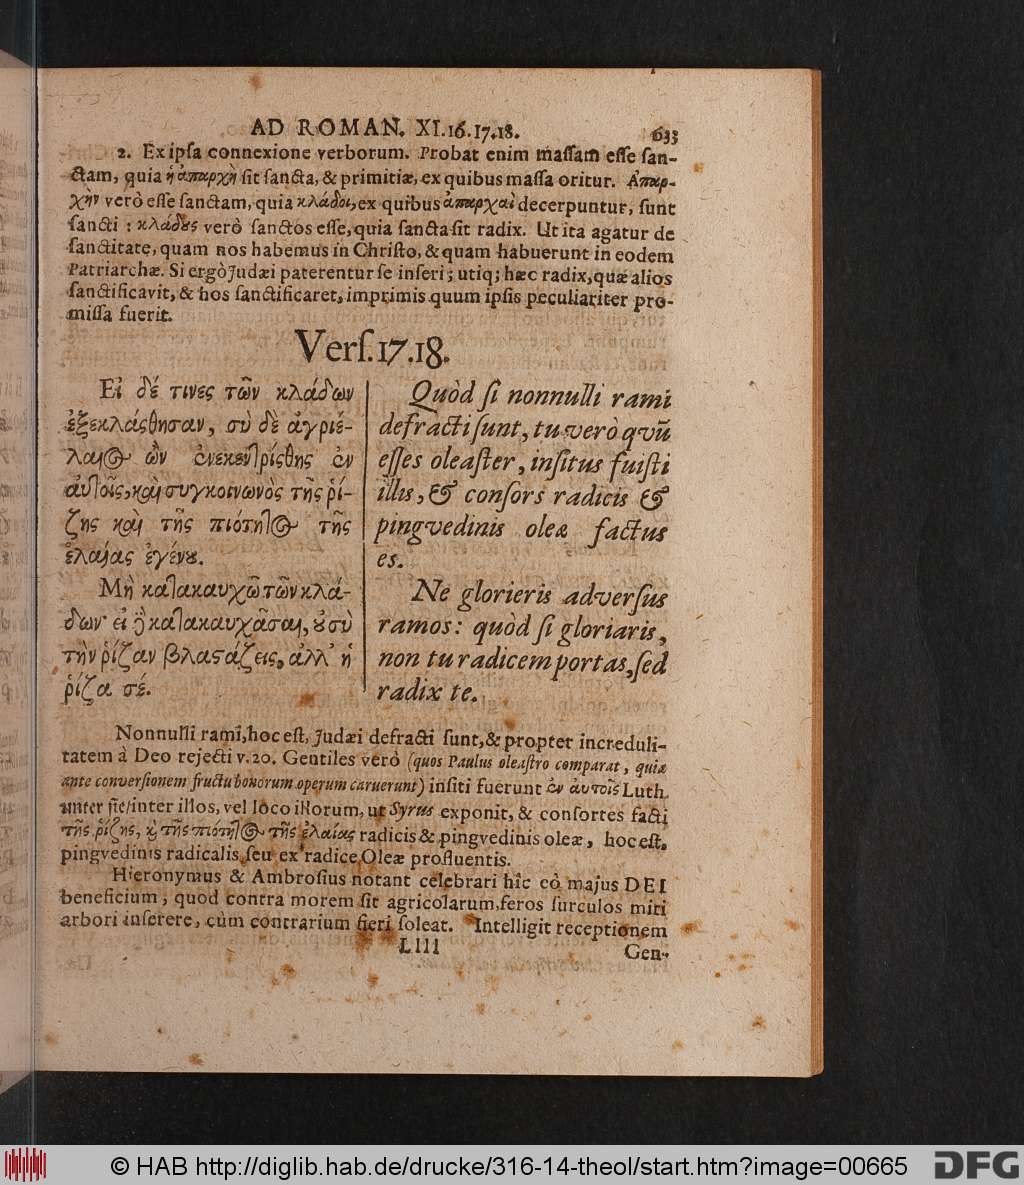 AD ROMAN. XI.16.17.18. 633
2. Ex ipſa connexione verborum. Probat enim maſſam eſſe ſan-
ctam, quia ἡ ἀπαρχὴ ſit ſancta, & primitiæ, ex quibus maſſa oritur. Ἀπαρ-
χὴν verò eſſe ſanctam, quia κλάδοι, ex quibus ἀπαρχαὶ decerpuntur, ſunt
ſancti : κλάδους verò ſanctos eſſe, quia ſancta ſit radix. Ut ita agatur de
ſanctitate, quam nos habemus in Chriſto, & quam habuerunt in eodem
Patriarchæ. Si ergò Judæi paterentur ſe inſeri; utiq; hæc radix, quæ alios
ſanctificavit, & hos ſanctificaret, imprimis quum ipſis peculiariter pro-
miſſa fuerit.
Verſ. 17. 18.
Εἰ δέ τινες τῶν κλάδων
ἐξεκλάσθησαν, σὺ δὲ ἀγριέ-
λαιος ὢν ἐνεκεντρίσθης ἐν
αὐτοῖς, καὶ συγκοινωνὸς τῆς ῥί-
ζης καὶ τῆς πιότητος τῆς
ἐλαίας ἐγένου.
Μὴ κατακαυχῶ τῶν κλά-
δων· εἰ δὲ κατακαυχᾶσαι, οὐ σὺ
τὴν ῥίζαν βλαστάζεις, ἀλλ' ἡ
ῥίζα σέ.
Quòd ſi nonnulli rami
defracti ſunt, tu verò qvũ
eſſes oleaſter, inſitus fuiſti
illis, & conſors radicis &
pingvedinis oleæ factus
es.
Ne glorieris adverſus
ramos: quòd ſi gloriaris,
non tu radicem portas, ſed
radix te.
Nonnulli rami, hoc eſt, Judæi defracti ſunt, & propter increduli-
tatem à Deo rejecti v. 20. Gentiles verò (quos Paulus oleaſtro comparat, quia
ante converſionem fructu bonorum operum caruerunt) inſiti fuerunt ἐν αὐτοῖς Luth.
unter ſie/ inter illos, vel loco illorum, ut Syrus exponit, & conſortes facti
τῆς ῥίζης, καὶ τῆς πιότητος τῆς ἐλαίας radicis & pingvedinis oleæ, hoc eſt,
pingvedinis radicalis, ſeu ex radice Oleæ profluentis.
Hieronymus & Ambroſius notant celebrari hîc eò majus DEI
beneficium, quod contra morem ſit agricolarum, feros ſurculos miti
arbori inſerere, cùm contrarium fieri ſoleat. Intelligit receptionem
Llll Gen-
© HAB http://diglib.hab.de/drucke/316-14-theol/start.htm?image=00665 DFG